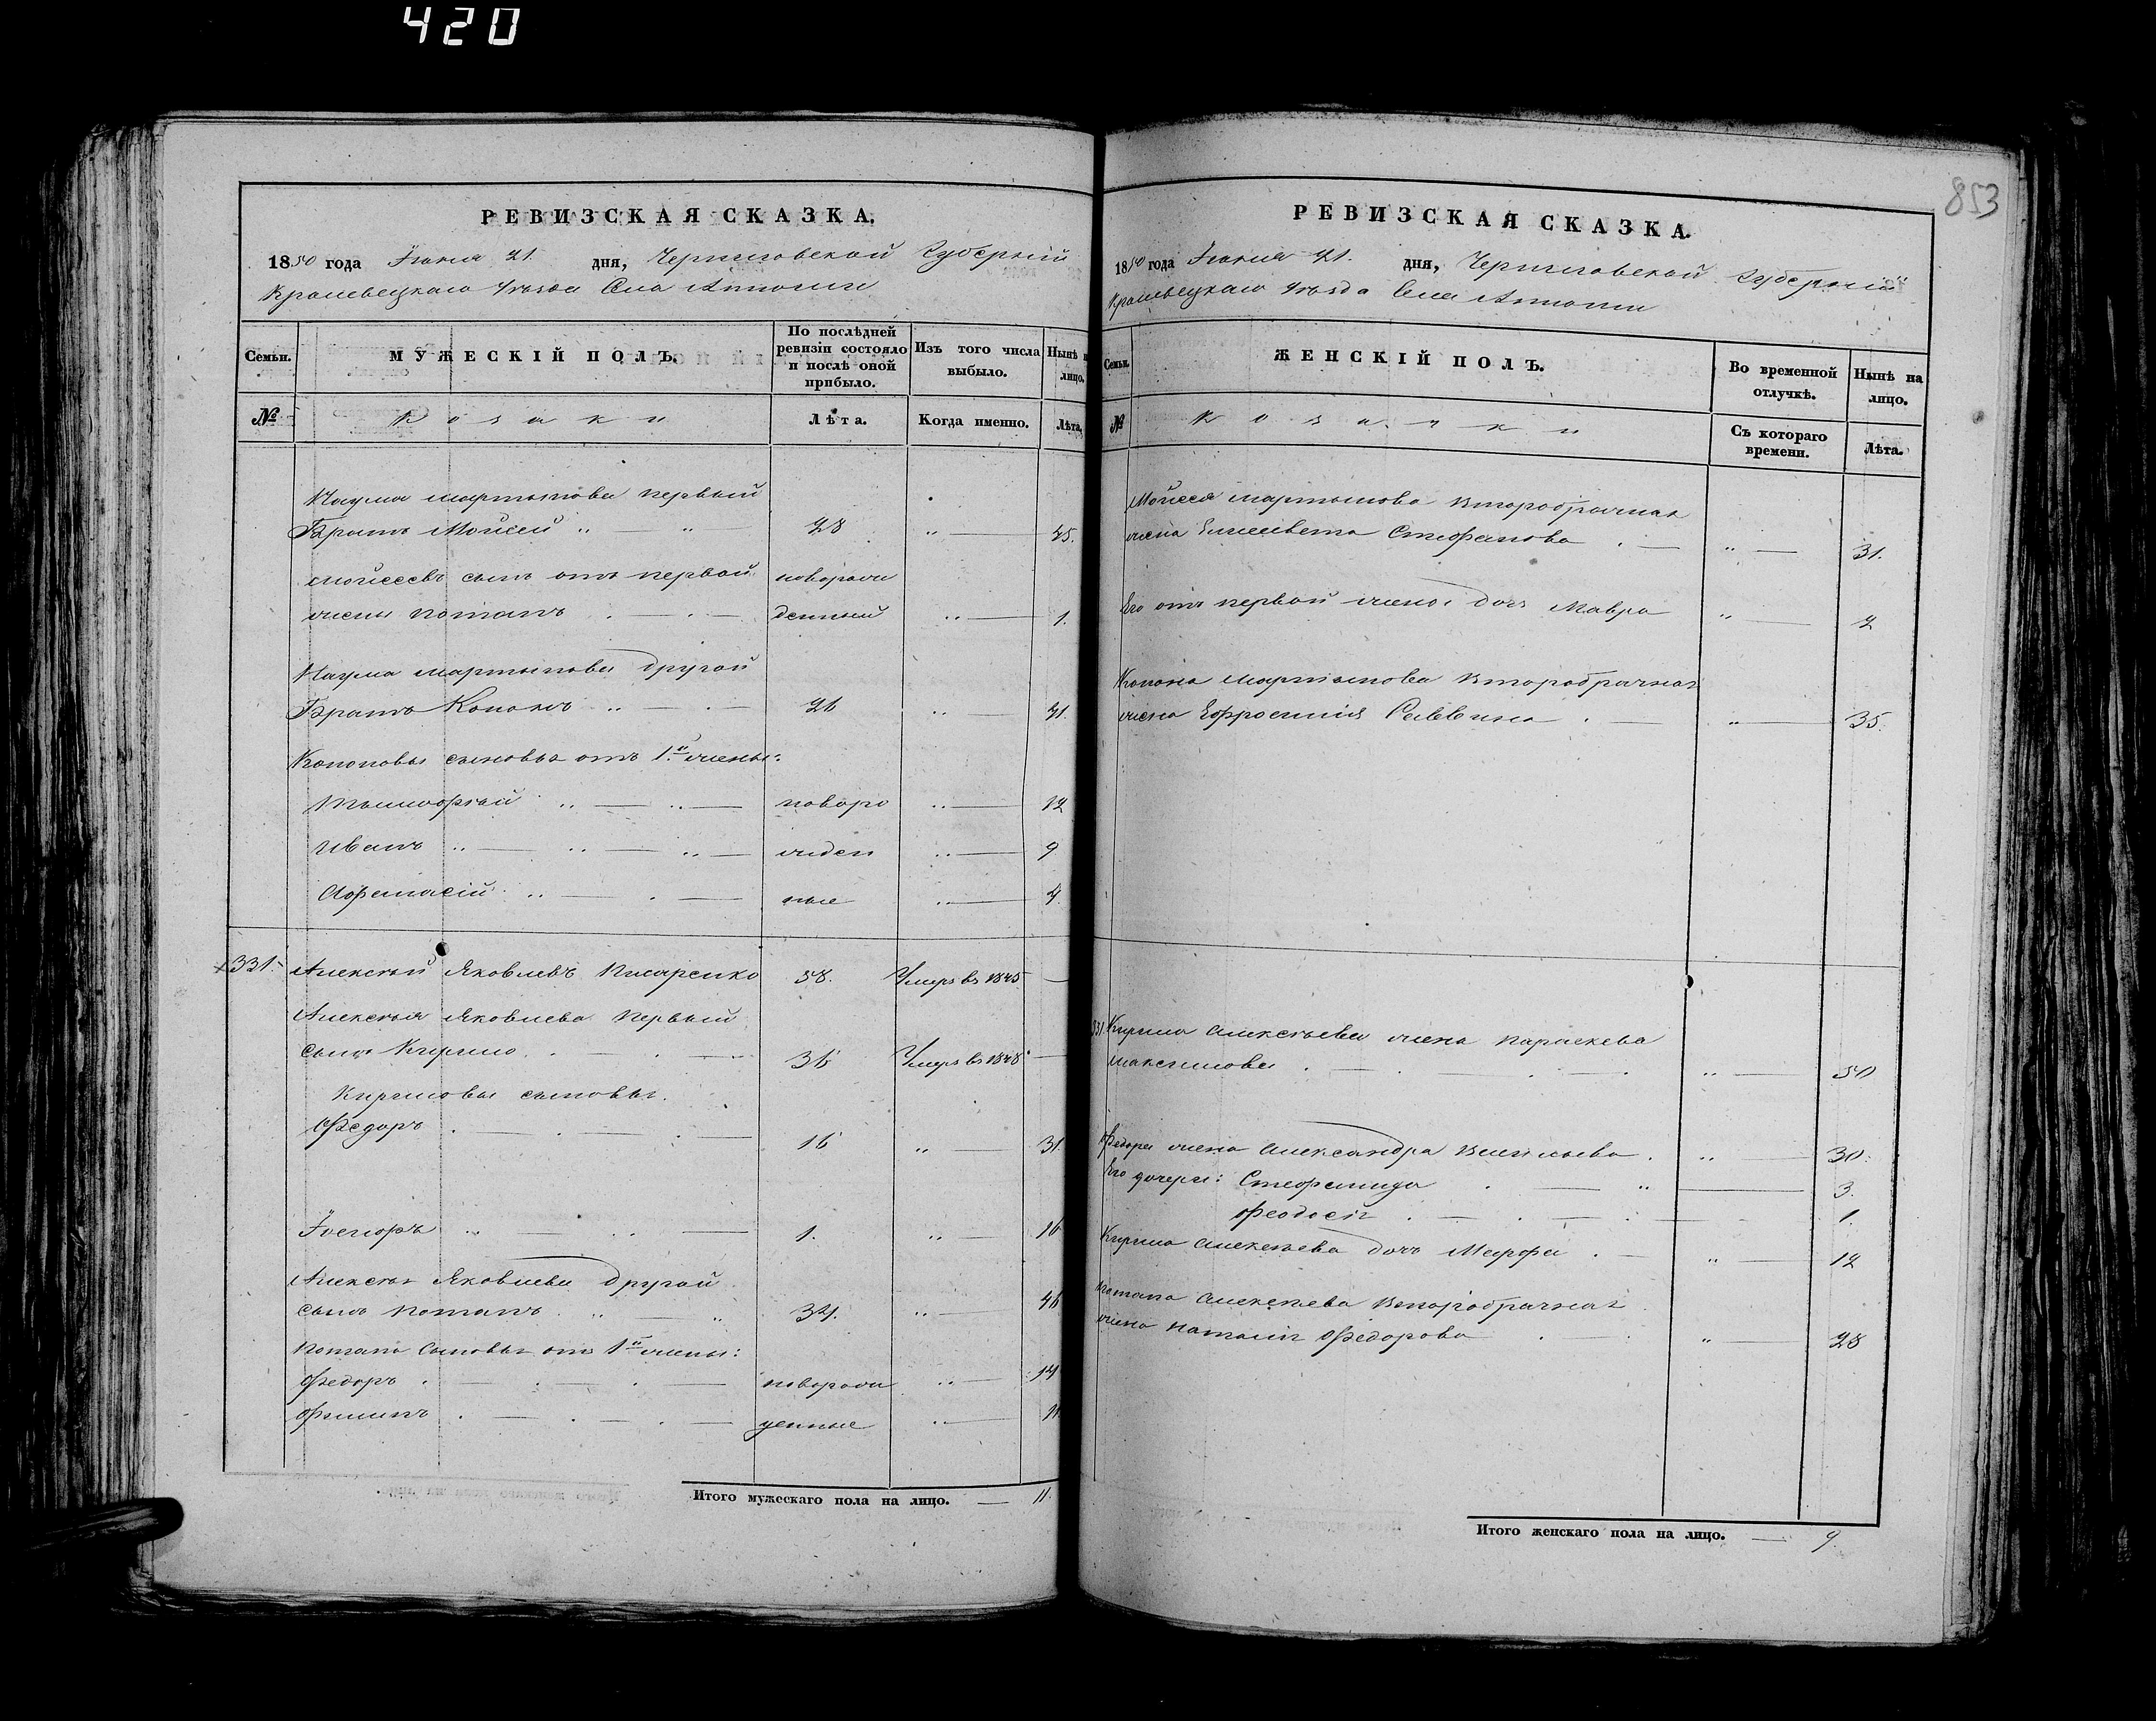 420
853
РЕВИЗСКАЯ СКАЗКА.
1850 года Іюня 21. дня, Черниговской Губерніи
Кролевецкаго Уѣзда Села
Семьи. МУЖЕСКІЙ ПОЛЪ. По послѣдней ревизіи состояло и послѣ оной прибыло. Изъ того числа выбыло. Нынѣ на лицо.
№ Козаки Лѣта. Когда именно. Лѣта.
Наума Мартынова первый
Братъ Мойсей 28 " 45.
Мойсеевъ сынъ отъ первой новорож
жены Потапъ денный " 1.
Наума Мартынова другой
Братъ Кононъ 26 "
Кононовы сыновья отъ 1й жены:
новоро " 12
Иванъ жден " 9
Афанасій ные " 4
331. Алексѣй Яковлевъ Писаренко 58. Умеръ въ 1845 —
Алексѣя Яковлева первый
сынъ Кирило 36 Умеръ въ 1848 —
Кириловы сыновья.
Федоръ 16 " 31.
1. " 16
Алексѣя Яковлева другой
сынъ Потапъ 34. " 46
Потапа сыновья отъ 1й жены:
Федоръ новорож " 14
Филипъ денные " 11
Итого мужескаго пола на лицо. — 11.
РЕВИЗСКАЯ СКАЗКА.
1850 года Іюня 21. дня, Черниговской Губерніи
Кролевецкаго Уѣзда Села
Семьи. ЖЕНСКІЙ ПОЛЪ. Во временной отлучкѣ. Нынѣ на лицо.
№ Козачки Съ котораго времени. Лѣта.
Мойсея Мартынова второбрачная
жена Елисавета Стефанова " 31.
Его отъ первой жены дочь Мавра "
Конона Мартынова второбрачная
жена Ефросинія Саввина " 35.
331. Кирила Алексѣева жена Параскева
Максимова " 50
Федора жена Александра Васильева " 30.
Его дочери: Стефанида " 3.
Феодосія 1.
Кирила Алексѣева дочь Марфа " 12
Потапа Алексѣева второбрачная
жена Наталія Федорова " 28
Итого женскаго пола на лицо. — 9.